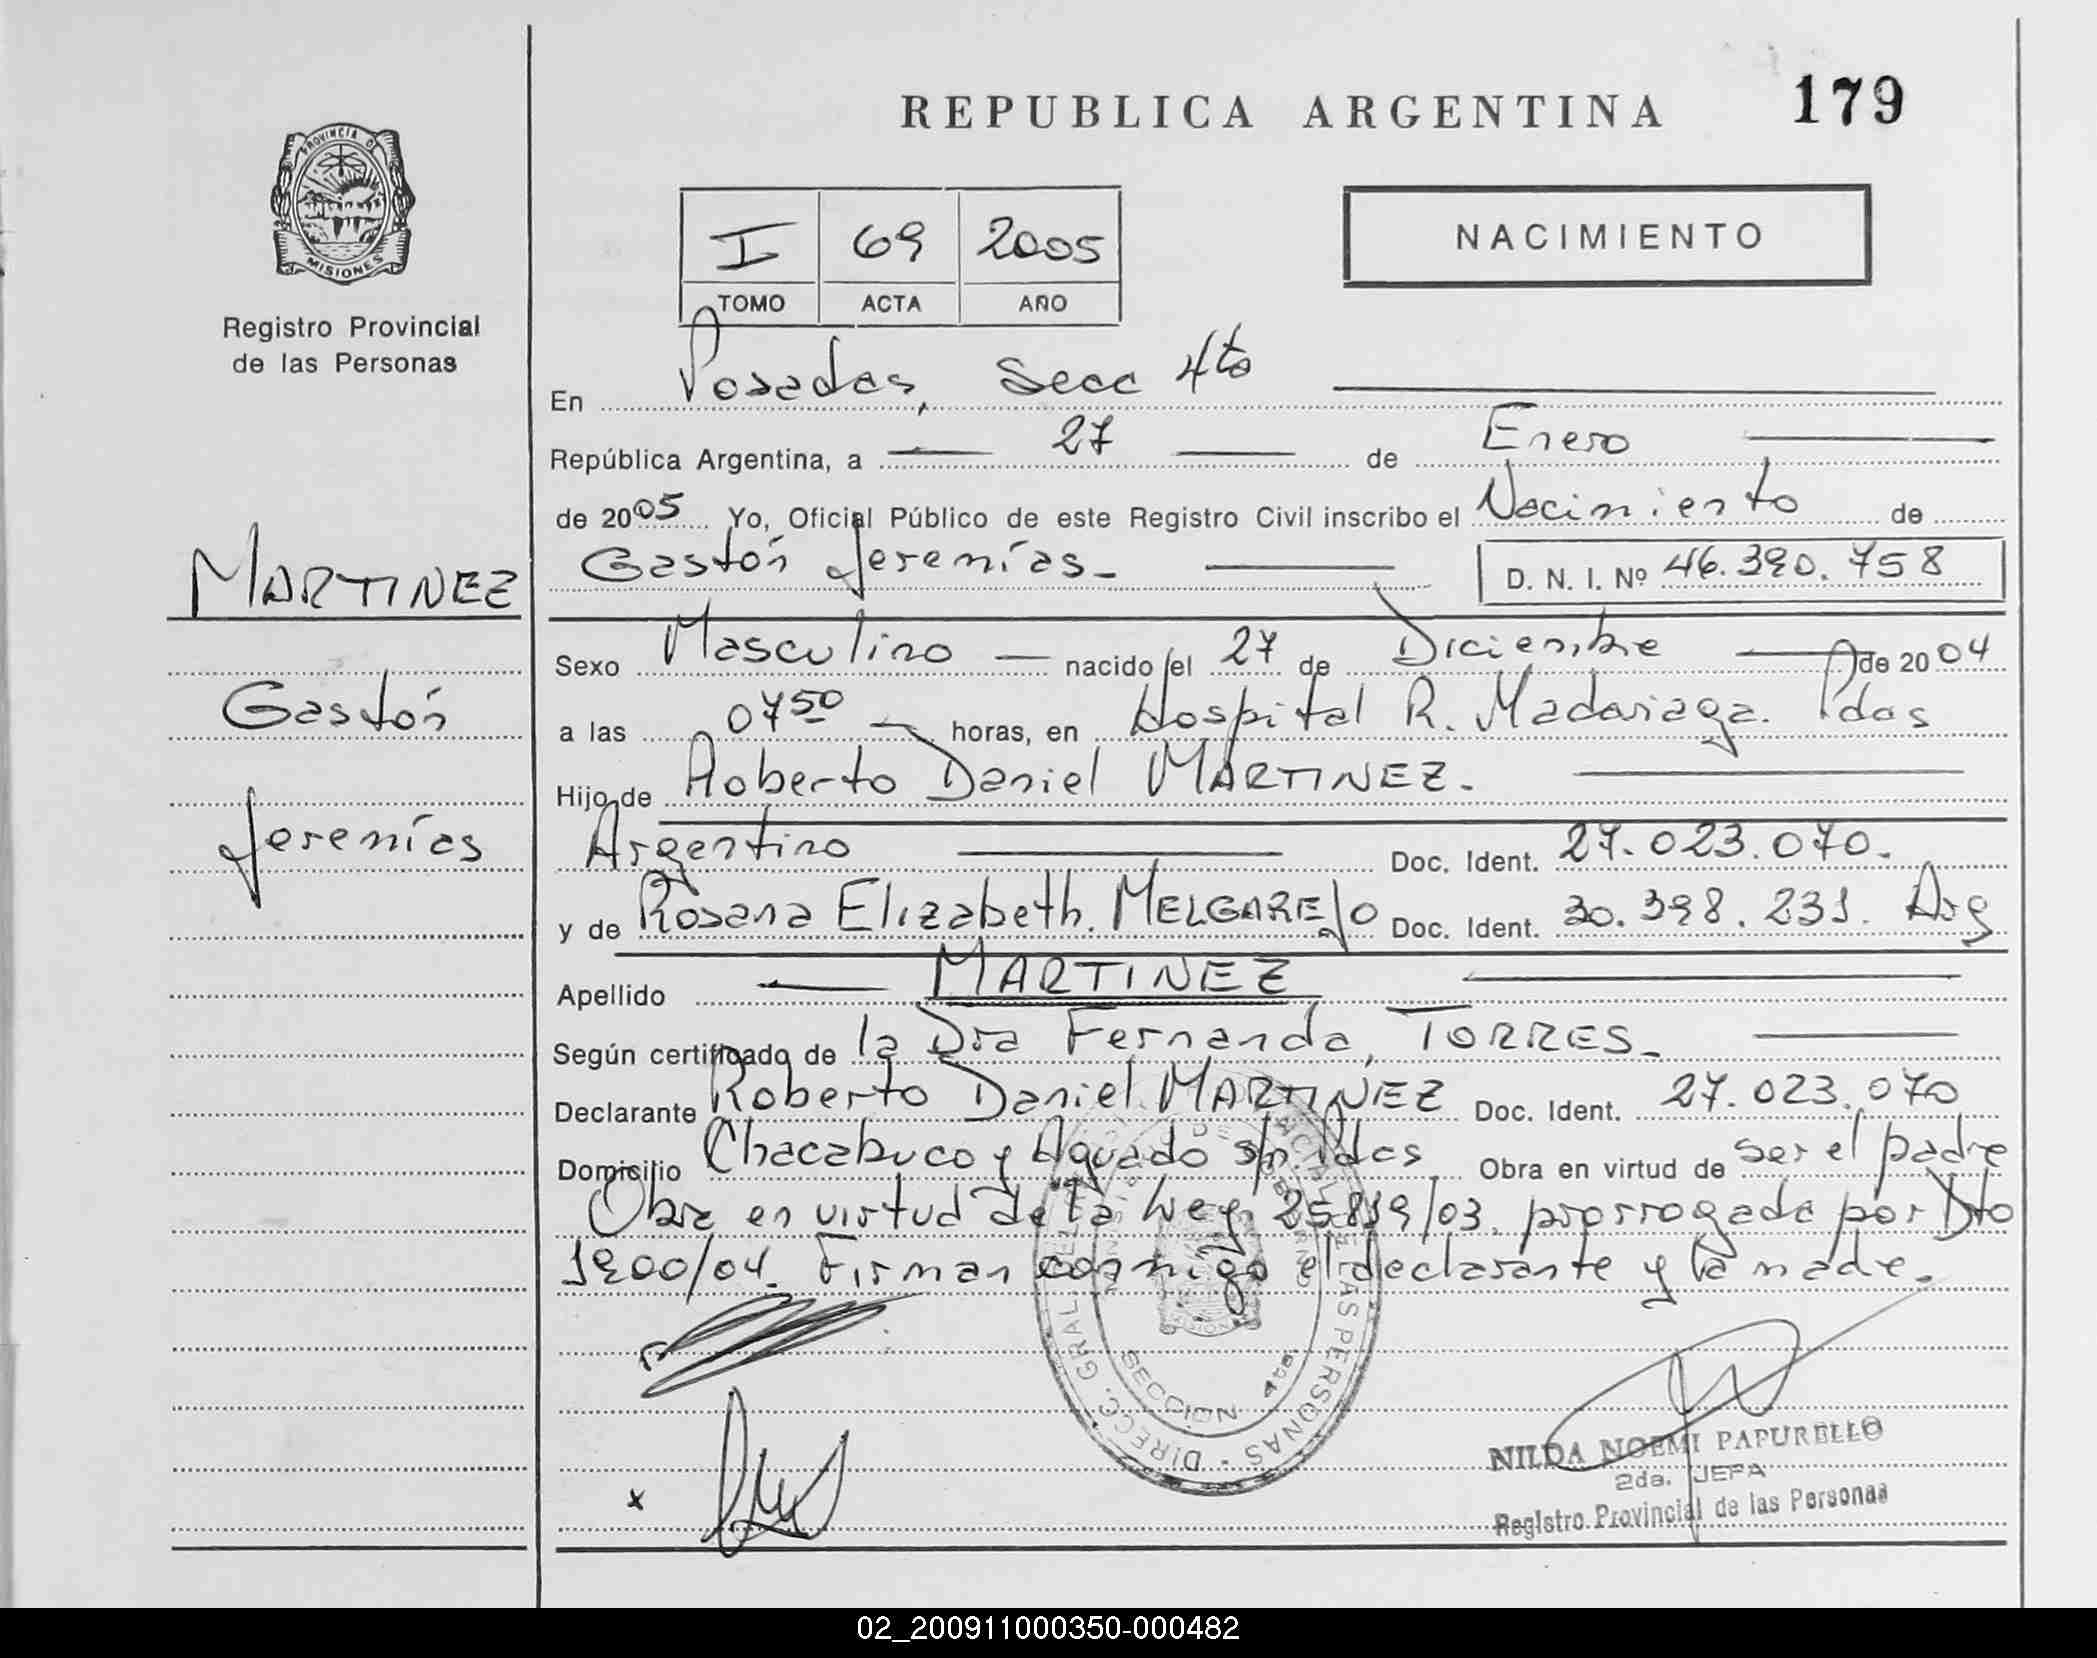 REPUBLICA ARGENTINA
179
PROVINCIA DE
MISIONES
Registro Provincial
de las Personas
I 69 2005
TOMO ACTA AÑO
NACIMIENTO
En Posadas, Secc 4ta
República Argentina, a 27 de Enero
de 2005 Yo, Oficial Público de este Registro Civil inscribo el Nacimiento de
Gastón Jeremías.-
D. N. I. Nº 46.390.758
MARTINEZ
Gastón
Jeremías
Sexo Masculino nacido el 27 de Diciembre de 2004
a las 0750 horas, en Hospital R. Madariaga. Pdas
Hijo de Roberto Daniel MARTINEZ.
Argentino Doc. Ident. 27.023.070.
y de Rosana Elizabeth. MELGAREJO Doc. Ident. 30.398.231. Arg
Apellido MARTINEZ
Según certificado de la Dra Fernanda, TORRES.-
Declarante Roberto Daniel MARTINEZ Doc. Ident. 27.023.070
Domicilio Chacabuco y Aguado s/n. Pdas Obra en virtud de ser el padre
Obra en virtud de la Ley 25819/03. prorrogada por Dto
1900/04. Firman conmigo el declarante y la madre.
x
SECCION 4ta.
NILDA NOEMI PAPURELLO
2da. JEFA
Registro Provincial de las Personas
02_200911000350-000482